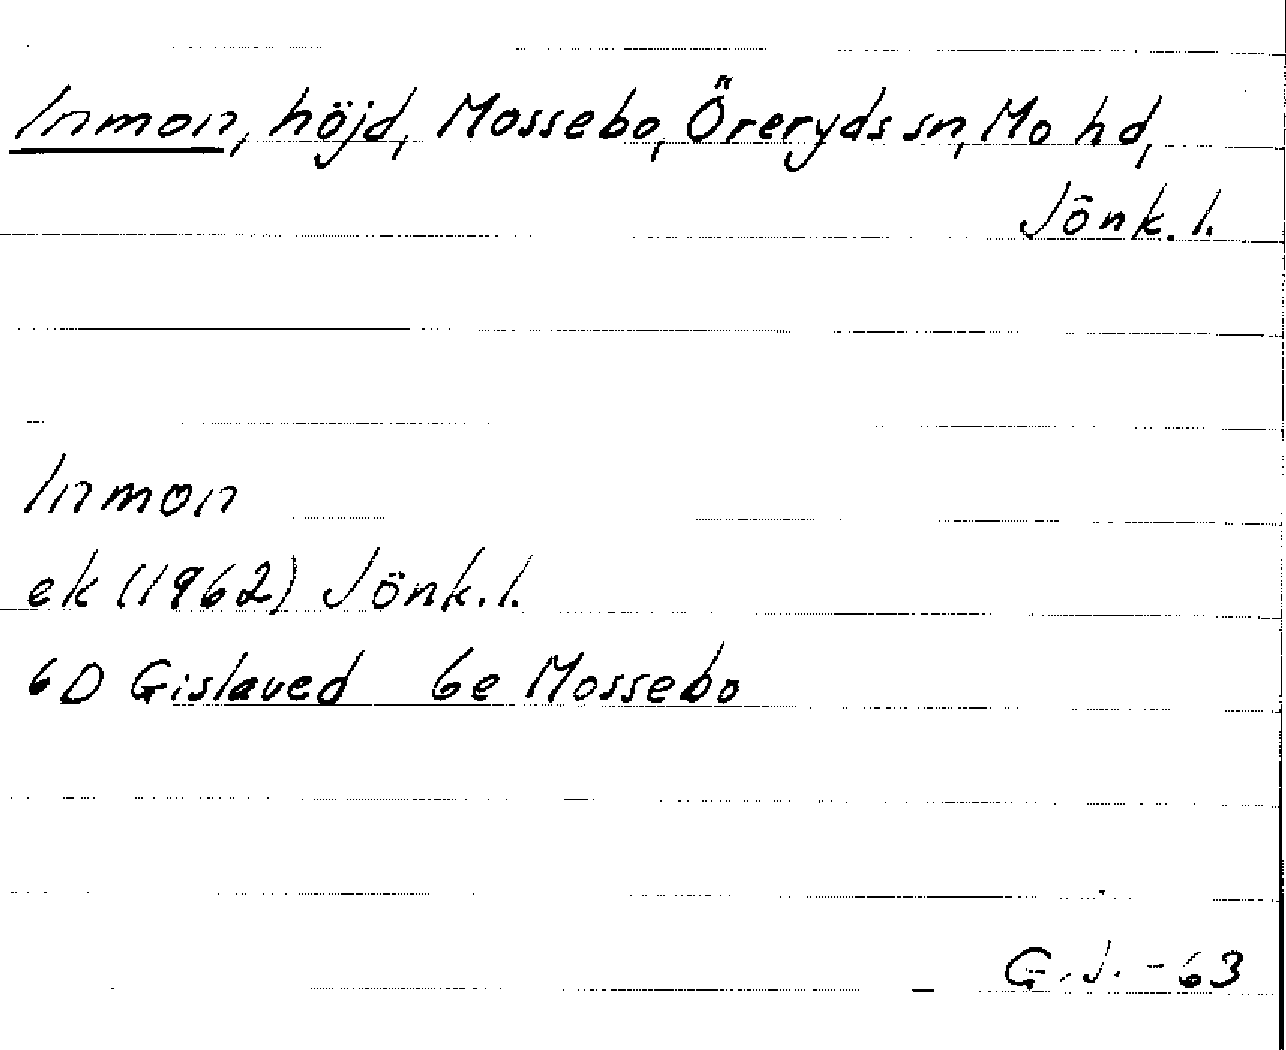 Inmon, höjd, Mossebo, Öreryds sn, Mo hd,
Jönk. l.
Inmon
ek (1962) Jönk. l.
6D Gislaved 6e Mossebo
G. J. - 63